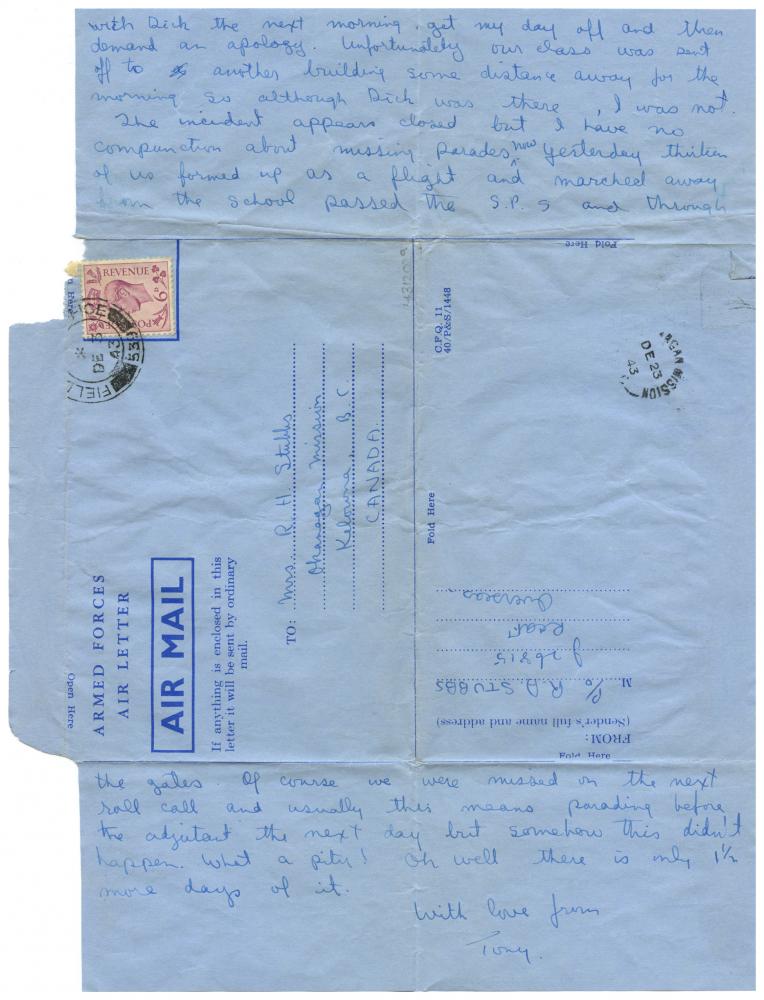 with Dick the next morning, get my day off and then
demand an apology. Unfortunately our class was sent
off to another building some distance away for the
morning so although Dick was there, I was not.
The incident appears closed but I have no
compunction about missing parades now. Yesterday thirteen
of us formed up as a flight and marched away
from the school passed the S.P.s and through
Fold Here
REVENUE
6D
FIELD
DE
43
536
ARMED FORCES
AIR LETTER
AIR MAIL
If anything is enclosed in this
letter it will be sent by ordinary
mail.
Open Here
TO: Mrs. R H Stubbs
Okanagan Mission
Kelowna, B C.
CANADA
C.F.Q. 11
40/P&S/1448
Fold Here
AGAN MISSION
DE 23
43
FROM:
(Sender's full name and address)
P/O R D STUBBS
J 26815
RCAF
Overseas
Fold Here
the gates. Of course we were missed on the next
roll call and usually this means parading before
the adjutant the next day but somehow this didn't
happen. What a pity! Oh well there is only 1½
more days of it.
With love from
Tony.